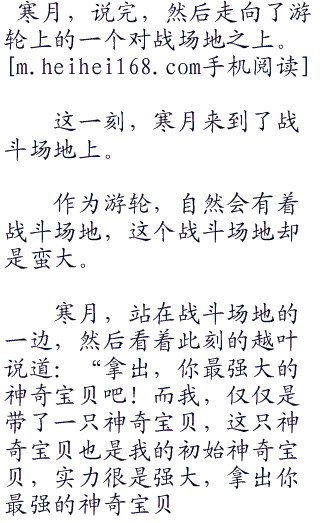 寒月，说完，然后走向了游
轮上的一个对战场地之上。
[m.heihei168.com手机阅读]
这一刻，寒月来到了战
斗场地上。
作为游轮，自然会有着
战斗场地，这个战斗场地却
是蛮大。
寒月，站在战斗场地的
一边，然后看着此刻的越叶
说道：“拿出，你最强大的
神奇宝贝吧！而我，仅仅是
带了一只神奇宝贝，这只神
奇宝贝也是我的初始神奇宝
贝，实力很是强大，拿出你
最强的神奇宝贝